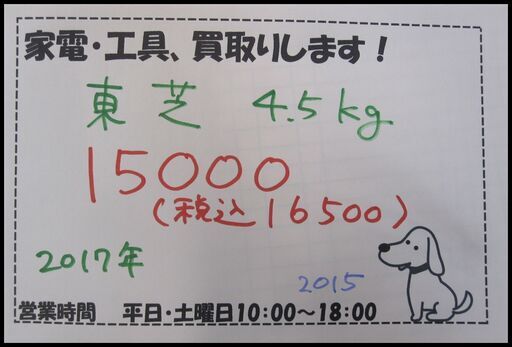 家電・工具、買取りします！
東芝 4.5kg
15000
(税込16500)
2017年
2015
営業時間 平日・土曜日10:00～18:00